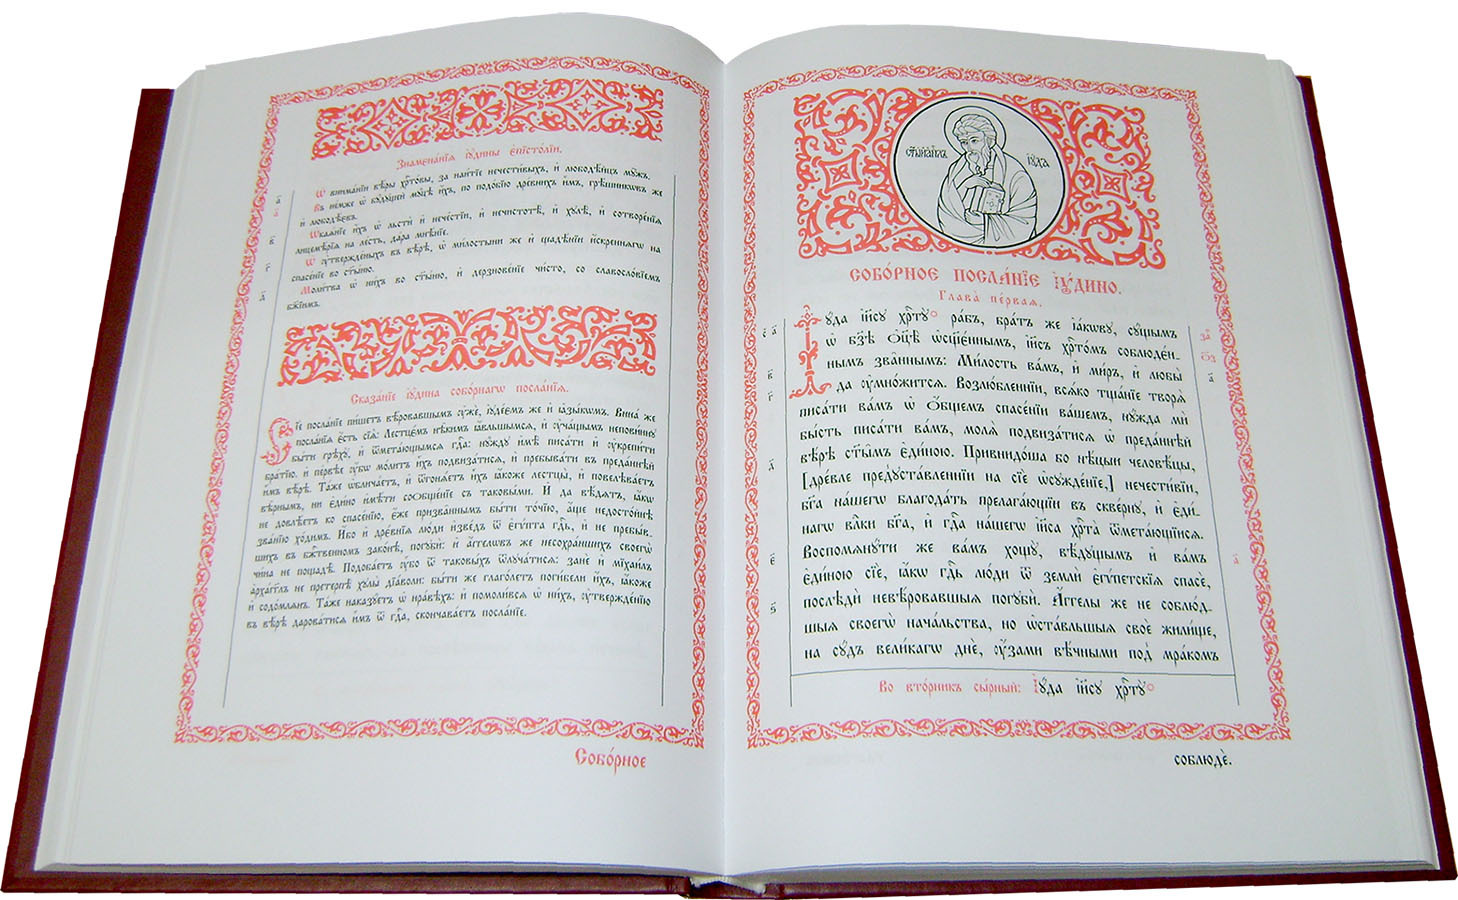 Знаменанїѧ і҆ꙋ́дины є҆пїсто́лїи.
Ѡ҆ внима́нїи вѣ́ры хрⷭ҇то́вы, за наи́тїе нечести́выхъ, и҆ любодѣ́йцъ мꙋ́жъ.
Въ не́мже ѡ҆ бꙋ́дꙋщей мꙋ́цѣ и҆́хъ, по подо́бїю дре́внихъ и҆̀мъ, грѣ́шникѡвъ же
и҆ любодѣ́евъ.
Ѡ҆каѧ́нїе и҆́хъ ѡ҆ льстѝ и҆ нече́стїи, и҆ нечистотѣ̀, и҆ хꙋлѣ̀, и҆ сотворе́нїѧ
лицемѣ́рїѧ на ле́сть, да́ра мнѣ́нїе.
Ѡ҆ ᲂу҆твержде́ныхъ въ вѣ́рѣ, ѡ҆ ми́лостыни же и҆ щадѣ́нїи и҆́скреннѧгѡ на
спасе́нїе во ст҃ы́ню.
Моли́тва ѡ҆ ни́хъ во ст҃ы́ню, и҆ дерзнове́нїе чи́сто, со славосло́вїемъ
бж҃їимъ.
Сказа́нїе і҆ꙋ́дина собо́рнагѡ посла́нїѧ.
Сїѐ посла́нїе пи́шетъ вѣ́ровавшымъ ᲂу҆жѐ, і҆ꙋде́ѡмъ же и҆ ꙗ҆зы́кѡмъ. Вина́ же
посла́нїѧ є҆́сть сїѧ̀: Лестце́мъ нѣ́кимъ ꙗ҆́вльшымсѧ, и҆ ᲂу҆ча́щымъ непови́ннꙋ
бы́ти грѣхꙋ̀, и҆ ѿмета́ющымсѧ гдⷭ҇а: нꙋ́ждꙋ и҆мѣ̀ писа́ти и҆ ᲂу҆крѣпи́ти
бра́тїю. и҆ пе́рвѣе ᲂу҆́бѡ мо́литъ и҆̀хъ подвиза́тисѧ, и҆ пребыва́ти въ пре́даннѣй
и҆̀мъ вѣ́рѣ. Та́же ѡ҆блича́етъ, и҆ ѿгонѧ́етъ и҆̀хъ ꙗ҆́коже лестцы̀, и҆ повелѣва́етъ
вѣ̑рнымъ, ни є҆ди́но и҆мѣ́ти соѻбще́нїе съ таковы́ми. И҆ да вѣ́дѧтъ, ꙗ҆́кѡ
не довлѣ́етъ ко спасе́нїю, є҆́же при́званнымъ бы́ти то́чїю, а҆́ще недосто́йнѣ
зва́нїю хо́димъ. И҆́бо и҆ дре́внїѧ лю́ди и҆зве́дъ ѿ є҆гѵ́пта гдⷭ҇ь, и҆ не пребы́в-
шихъ въ бж҃е́ственномъ зако́нѣ, погꙋбѝ: и҆ а҆́гг҃лѡвъ же несохра́ншихъ своегѡ̀
чи́на не пощадѣ̀. Подоба́етъ ᲂу҆́бо ѿ таковы́хъ ѿлꙋча́тисѧ: занѐ и҆ мїхаи́лъ
а҆рха́гг҃лъ не претерпѣ̀ хꙋлы̀ дїа́воли: бы́ти же глаго́летъ поги́бели и҆́хъ, ꙗ҆́коже
и҆ содо́млѧнъ. Та́же наказꙋ́етъ ѡ҆ нра́вѣхъ: и҆ помоли́всѧ ѡ҆ ни́хъ, ᲂу҆твержде́нїю
въ вѣ́рѣ дарова́тисѧ и҆̀мъ ѿ гдⷭ҇а, сконча́ваетъ посла́нїе.
Собо́рное
ст҃ы́й а҆пⷭ҇лъ і҆ꙋ́да
СОБО́РНОЕ ПОСЛА́НЇЕ І҆Ꙋ́ДИНО.
Глава̀ пе́рваѧ.
І҆ꙋ́да і҆и҃сꙋ хрⷭ҇тꙋ̀ ра́бъ, бра́тъ же і҆а́кѡвꙋ, сꙋ́щымъ
ѡ҆ бз҃ѣ ѻ҆ц҃ѣ̀ ѡ҆сщ҃е́ннымъ, і҆и҃съ хрⷭ҇то́мъ соблюде́н-
нымъ зва́ннымъ: Ми́лость ва́мъ, и҆ ми́ръ, и҆ любы̀
да ᲂу҆мно́житсѧ. Возлю́бленнїи, всѧ́ко тща́нїе творѧ̀
писа́ти ва́мъ ѡ҆ ѻ҆́бщемъ спасе́нїи ва́шемъ, нꙋ́жда мѝ
бы́сть писа́ти ва́мъ, молѧ̀ подвиза́тисѧ ѡ҆ пре́даннѣй
вѣ́рѣ ст҃ы́мъ є҆ди́ною. Привнидо́ша бо нѣ́цыи человѣ́цы,
[дре́вле предꙋста́вленнїи на сїѐ ѡ҆сꙋжде́нїе,] нечести́вїи,
бг҃а на́шегѡ благода́ть прелага́ющїи въ скве́рнꙋ, и҆ є҆ди́-
нагѡ влⷣки бг҃а, и҆ гдⷭ҇а на́шегѡ і҆и҃са хрⷭ҇та̀ ѿмета́ющїисѧ.
Воспомѧнꙋ́ти же ва́мъ хощꙋ̀, вѣ́дꙋщымъ и҆ ва́мъ
є҆ди́ною сїѐ, ꙗ҆́кѡ гдⷭ҇ь лю́ди ѿ землѝ є҆гѵ́петскїѧ спасѐ,
послѣдѝ невѣ́ровавшыѧ погꙋбѝ. А҆́гг҃лы же не соблю́д-
шыѧ своегѡ̀ нача́льства, но ѡ҆ста́вльшыѧ своѐ жили́ще,
на сꙋ́дъ вели́кагѡ днѐ, ᲂу҆́зами вѣ́чными под̾ мра́комъ
Во вто́рникъ сы́рный: І҆ꙋ́да і҆и҃сꙋ хрⷭ҇тꙋ̀
соблюдѐ.